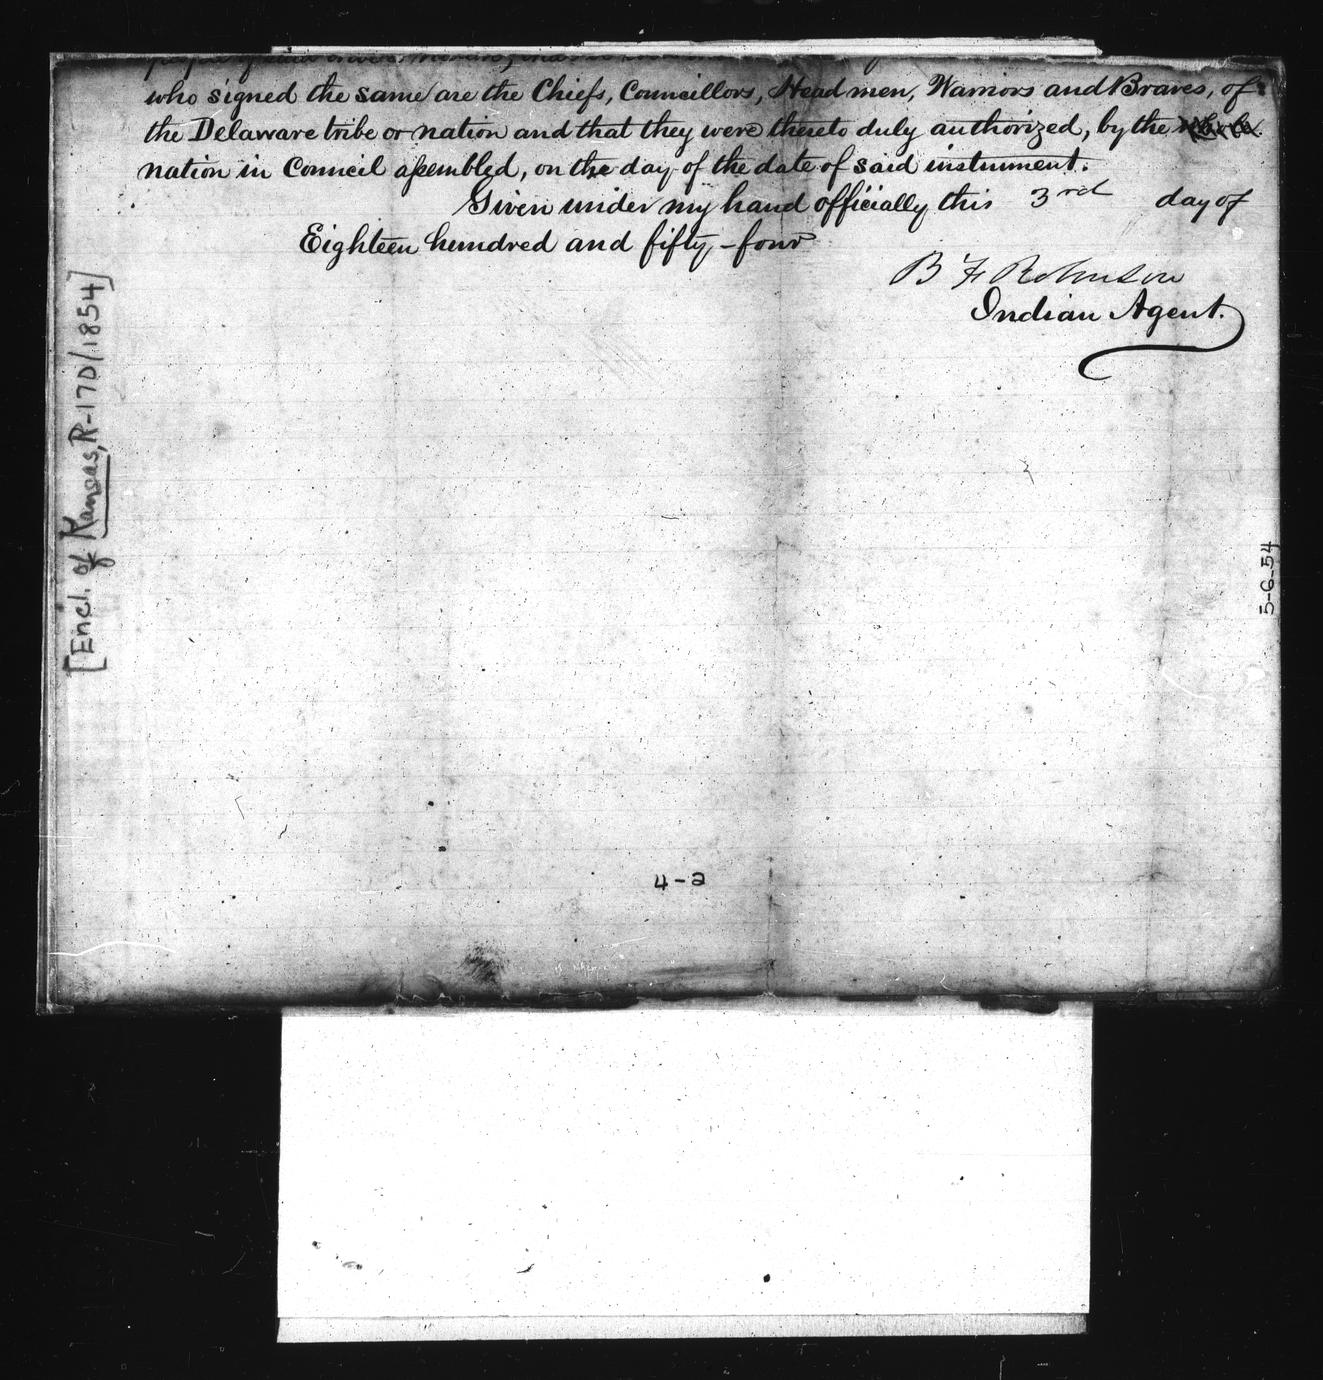 who signed the same are the Chiefs, Councillors, Head men, Warriors and Braves, of
the Delaware tribe or nation and that they were thereto duly authorized, by the
nation in Council assembled, on the day of the date of said instrument.
Given under my hand officially this 3rd day of
Eighteen hundred and fifty-four
B F Robinson
Indian Agent.
[Encl. of Kansas, R-170/1854]
5-6-54
4-2